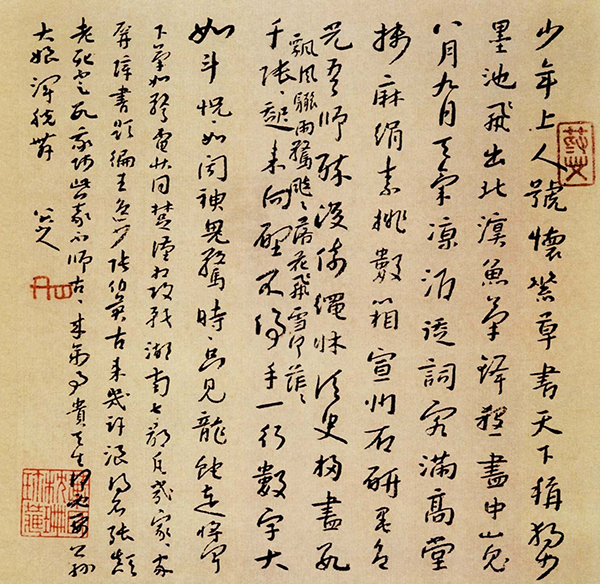 少年上人號懷素草書天下稱獨步
墨池飛出北溟魚筆鋒殺盡中山兔
八月九月天氣凉酒徒詞客滿高堂
箋麻絹素排數箱宣州石硯墨色
光吾師醉後倚繩床須臾掃盡數
飄風驟雨驚颯〻落花飛雪何茫〻
千張〻起來向壁不停手一行數字大
如斗怳如聞神鬼驚時〻只見龍蛇走
如驚電狀同楚漢相攻戰湖南七郡凡幾家〻家
屏障書題徧王逸少張伯英古來幾許浪得名張顛
老死不足數我師此義不師古〻來萬事貴天生何必要公孫
大娘渾脫舞